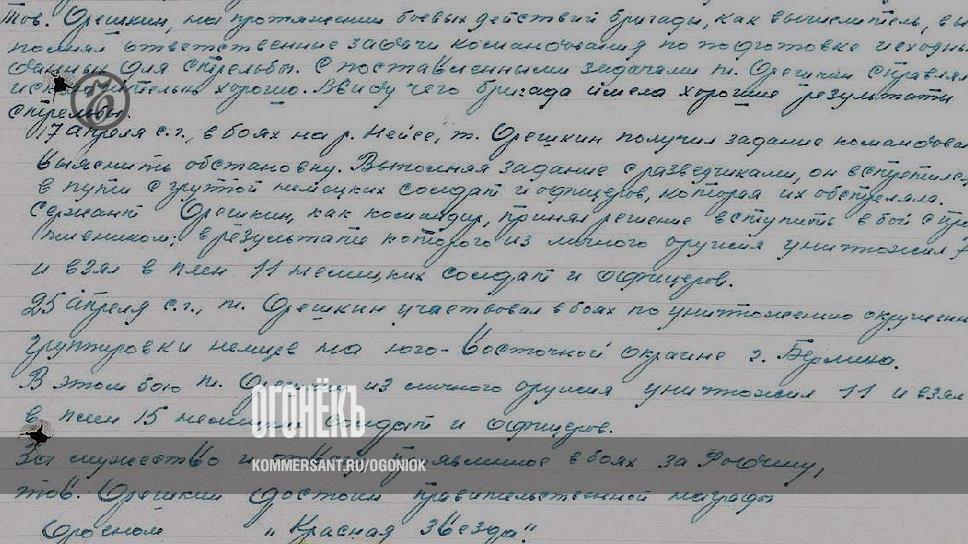 Тов. Орешкин, на протяжении боевых действий бригады, как вычислитель, вы
полнял ответственные задачи командования по подготовке исходных
данных для стрельбы. С поставленными задачами т. Орешкин справлял
исключительно хорошо. Ввиду чего бригада имела хорошие результаты
стрельбы.
17 апреля с.г., в боях на р. Нейсе, т. Орешкин получил задание командова
выяснить обстановку. Выполняя задание с разведчиками, он встретился
в пути с группой немецких солдат и офицеров, которая их обстреляла.
Сержант Орешкин, как командир, принял решение вступить в бой с про
тивником; в результате которого из личного оружия уничтожил 7
и взял в плен 11 немецких солдат и офицеров.
25 апреля с.г., т. Орешкин участвовал в боях по уничтожению окруженн
группировки немцев на юго-восточной окраине г. Берлина.
В этом бою т. Орешкин из личного оружия уничтожил 11 и взял
в плен 15 немецких солдат и офицеров.
ОГОНЁКЪ
KOMMERSANT.RU/OGONIOK
За мужество и отвагу проявленное в боях за Родину,
тов. Орешкин достоин правительственной награды
Орденом „Красная звезда".